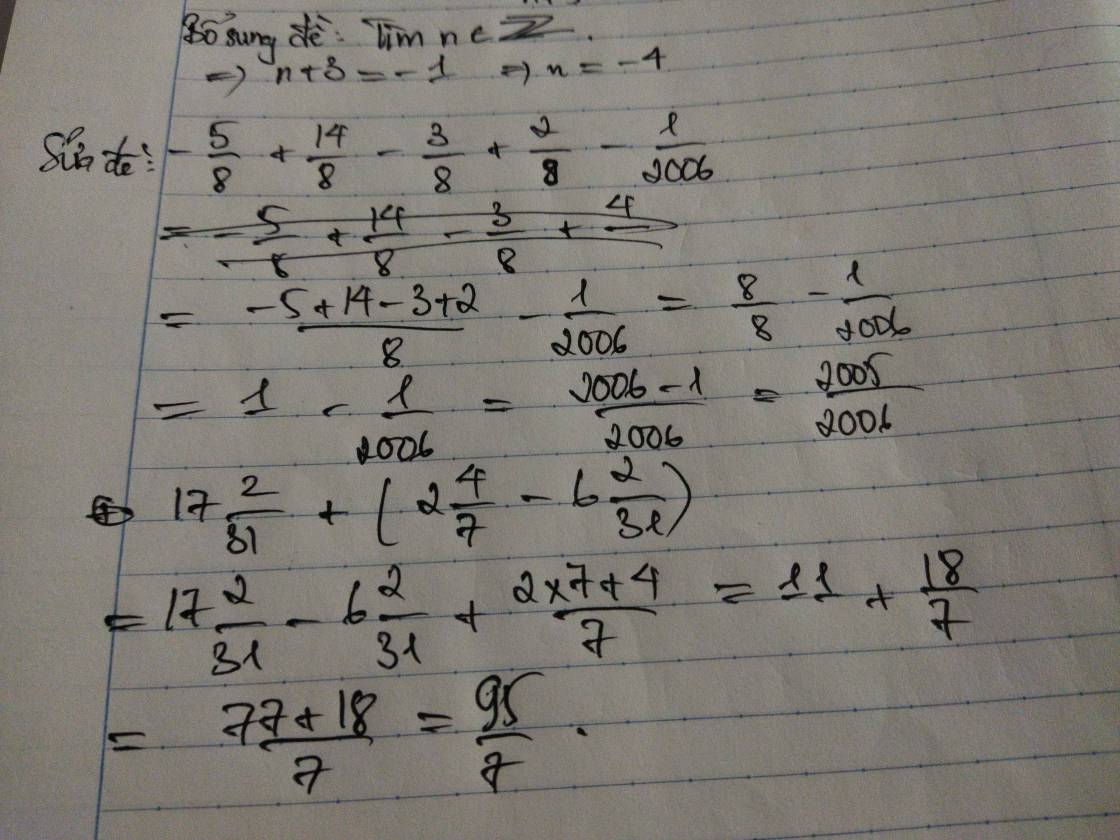 Bổ sung đề: Tìm n ∈ Z.
=> n+3 = -1 => n = -4
Sửa đề: - 5/8 + 14/8 - 3/8 + 2/8 - 1/2006
= - 5/8 + 14/8 - 3/8 + 4
= (-5+14-3+2)/8 - 1/2006 = 8/8 - 1/2006
= 1 - 1/2006 = (2006-1)/2006 = 2005/2006
+ 17 2/31 + (2 4/7 - 6 2/31)
= 17 2/31 - 6 2/31 + (2x7+4)/7 = 11 + 18/7
= (77+18)/7 = 95/7.